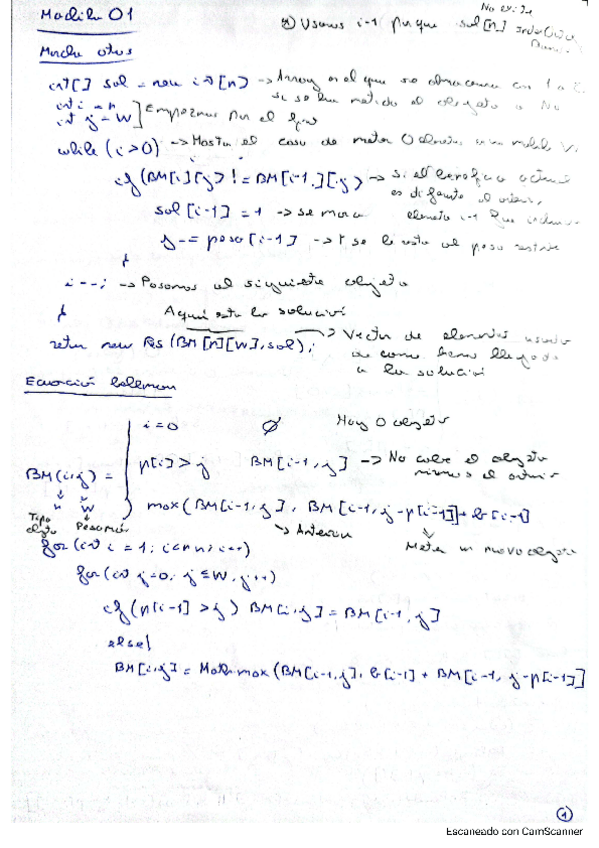 Mochila 01
No existe
*) Usamos i-1 porque sol[n]
Marcha atras
int[] sol = new int[n] -> Array en el que se almacena con 1 o 0
si se ha metido el objeto o No
int i = n
int j = W ] Empezamos por el final
while (i>0) -> Hasta el caso de meter 0 elementos en mochila
if (BM[i][j] != BM[i-1][j]) -> si el beneficio actual
es diferente al anterior,
sol[i-1] = 1 -> se marca elemento i-1
j -= peso[i-1] -> Y se le resta al peso
}
i--; -> Pasamos al siguiente objeto
} Aqui esta la solución
return new Res (BM[n][W], sol); -> Vector de elementos usados
de como hemos llegado
a la solución
Ecuación Bellman
i=0 Ø Hay 0 objetos
BM(i,j) = { p[i] > j BM[i-1,j] -> No cabe el objeto
max(BM[i-1,j], BM[i-1,j-p[i-1]]+b[i-1]
n W
Tipo objeto Peso max
-> Anterior
Meter un nuevo objeto
for(int i = 1; i<=n; i++)
for(int j=0; j≤W, j++)
if(p[i-1] > j) BM[i,j] = BM[i-1,j]
else{
BM[i,j] = Math.max(BM[i-1,j], b[i-1] + BM[i-1, j-p[i-1]]
1
Escaneado con CamScanner